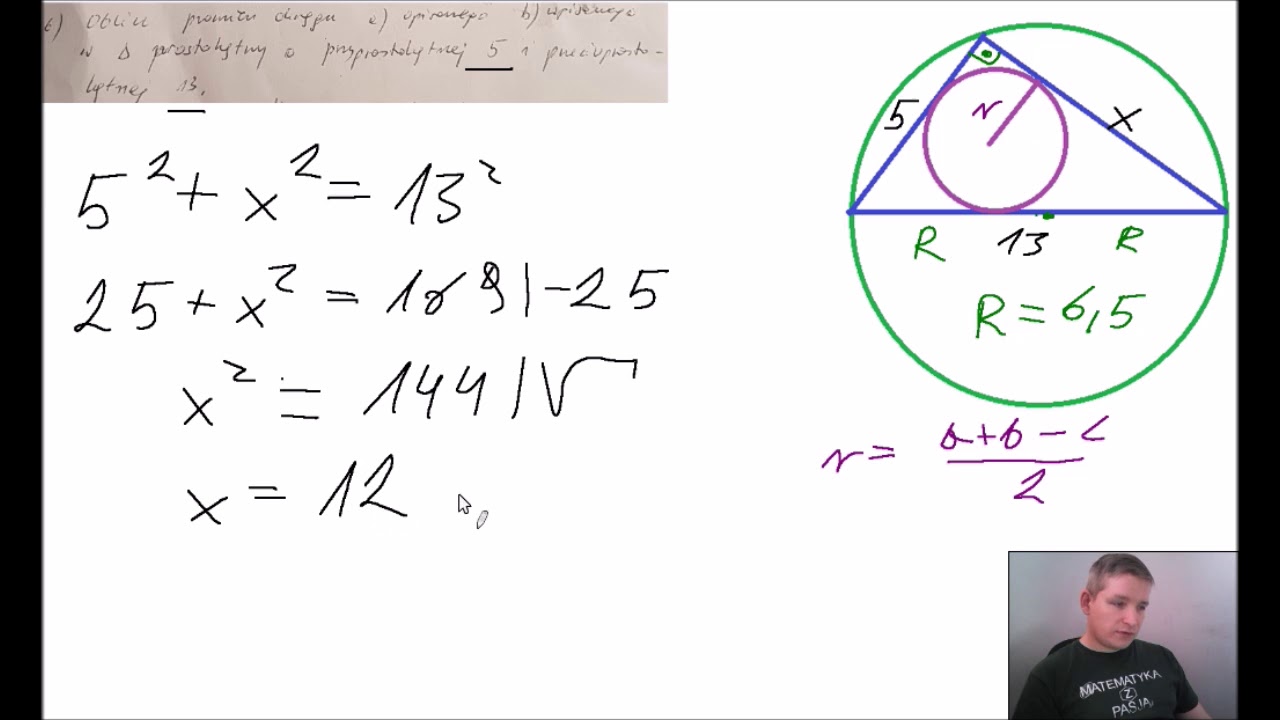 6) Oblicz promień okręgu a) opisanego b) wpisanego
w Δ prostokątny o przyprostokątnej 5 i przeciwprosto-
kątnej 13.
5² + x² = 13²
25 + x² = 169 | -25
x² = 144 | √
x = 12
5
r
x
R 13 R
R = 6,5
r = \frac{a+b-c}{2}
MATEMATYKA
Z
PASJĄ